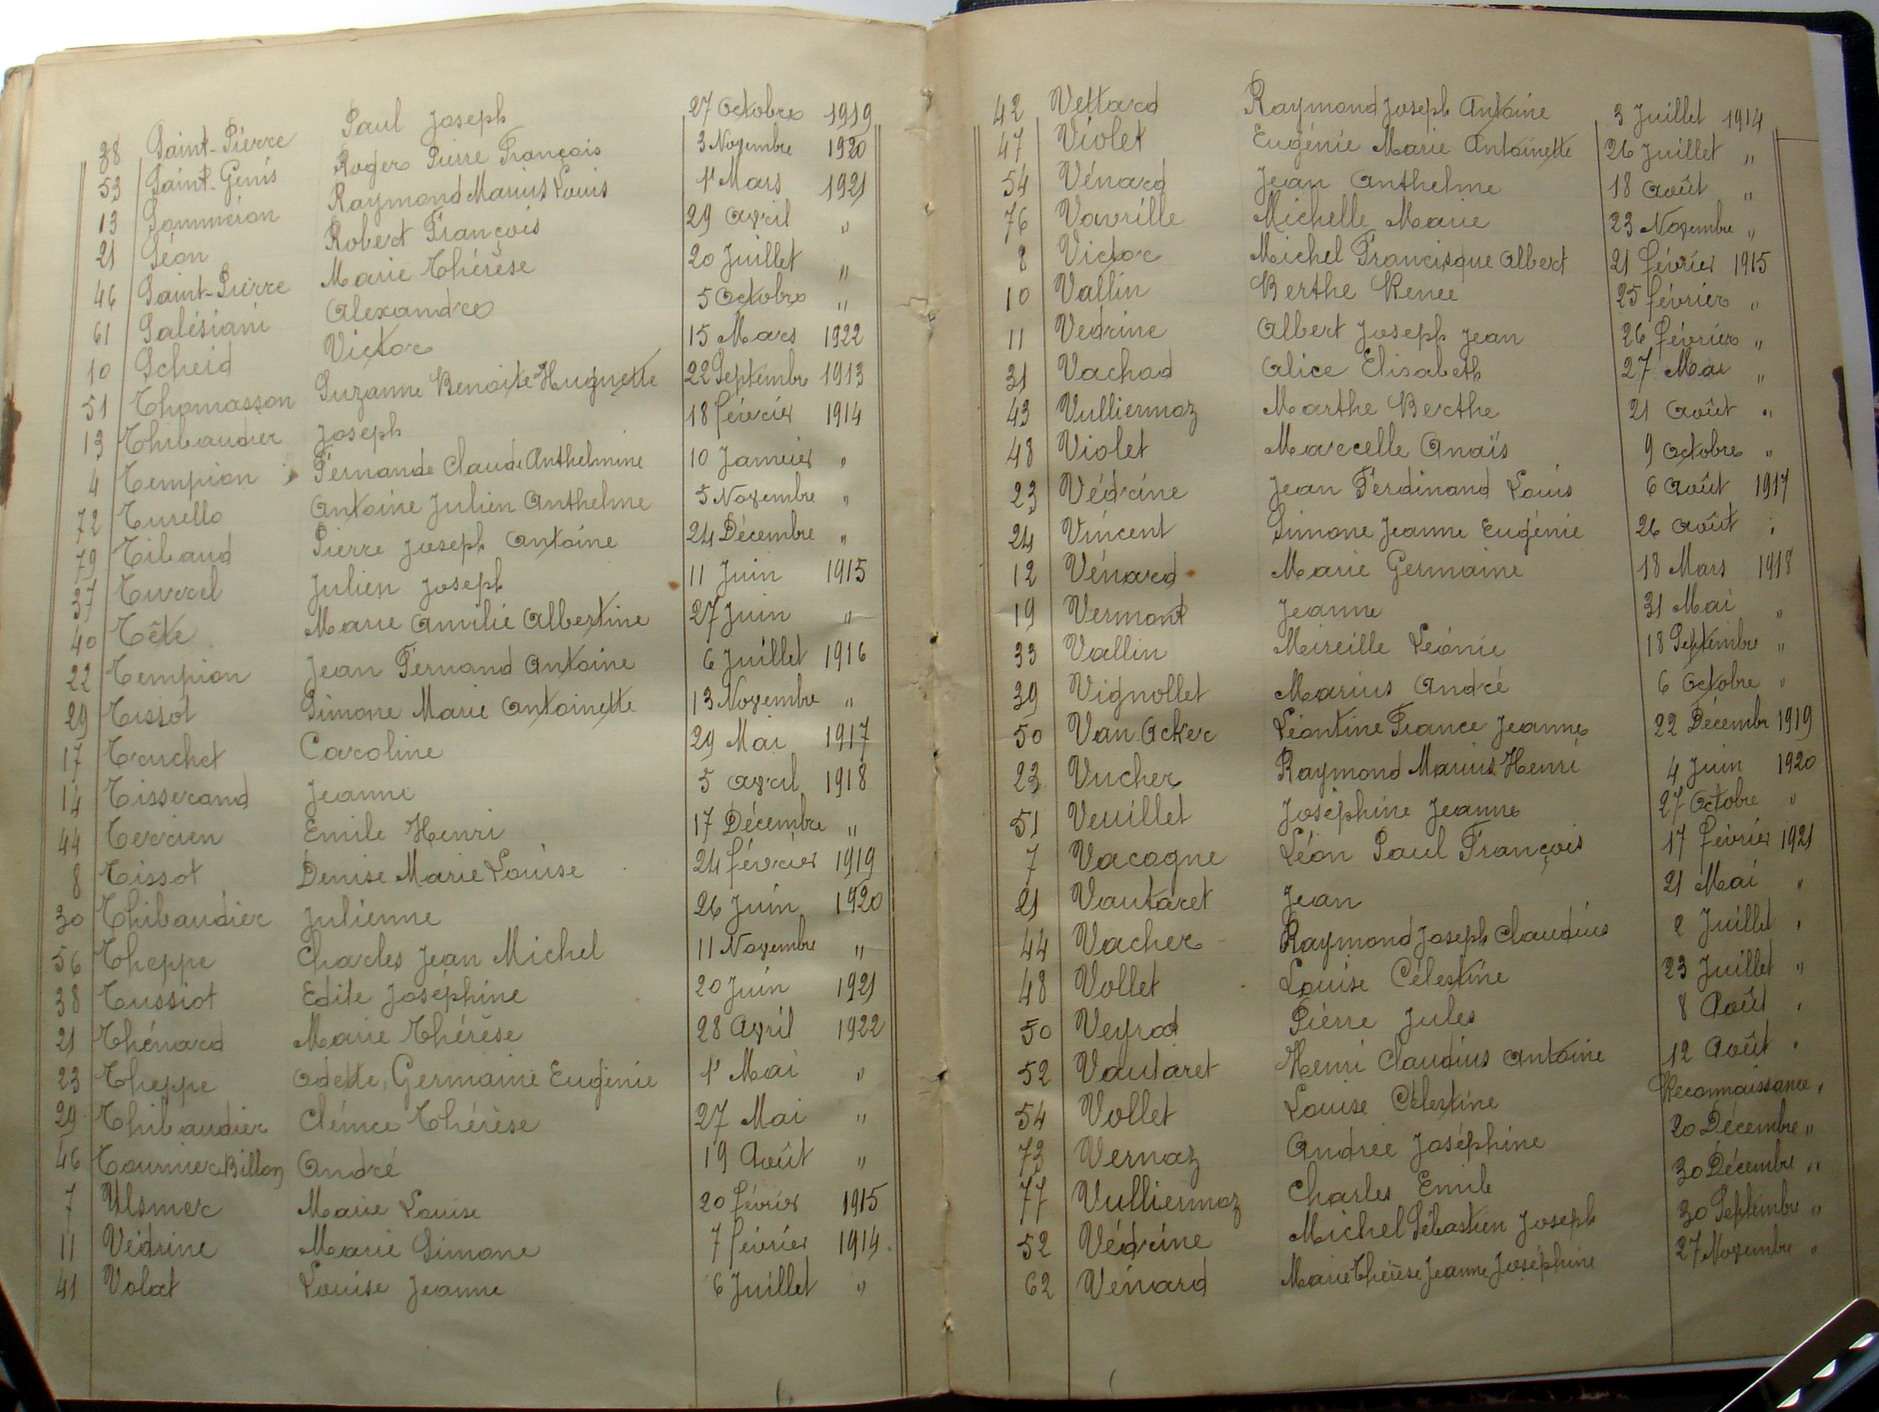 38 Saint-Pierre Paul Joseph 27 Octobre 1919
53 Saint-Genis Roger Pierre François 3 Novembre 1920
13 Sommeron Raymond Marius Louis 1r Mars 1921
21 Séon Robert François 29 Avril "
46 Saint-Pierre Marie Thérèse 20 Juillet "
61 Salésiani Alexandre 5 Octobre "
10 Scheid Victor 15 Mars 1922
51 Thomasson Suzanne Benoite Huguette 22 Septembre 1913
13 Thibaudier Joseph 18 février 1914
4 Tempion Fernande Claude Anthelmine 10 Janvier "
72 Turello Antoine Julien Anthelme 5 Novembre "
79 Tibaud Pierre Joseph Antoine 24 Décembre "
37 Turrel Julien Joseph 11 Juin 1915
40 Tête Marie Amilie Albertine 27 Juin "
22 Tempion Jean Fernand Antoine 6 Juillet 1916
29 Tissot Simone Marie Antoinette 13 Novembre "
17 Truchet Caroline 29 Mai 1917
14 Tisserand Jeanne 5 Avril 1918
44 Terrien Emile Henri 17 Décembre "
8 Tissot Denise Marie Louise 24 février 1919
30 Thibaudier Julienne 26 Juin 1920
56 Theppe Charles Jean Michel 11 Novembre "
38 Tussiot Edite Joséphine 20 Juin 1921
21 Thénard Marie Thérèse 28 Avril 1922
23 Theppe Odette Germaine Eugénie 1r Mai "
29 Thibaudier Clémce Thérèse 27 Mai "
46 Tournier Billon André 19 Août "
7 Ulsmer Marie Louise 20 février 1915
11 Védrine Marie Simone 7 février 1914
41 Volat Louise Jeanne 6 Juillet "
42 Vettard Raymond Joseph Antoine 3 Juillet 1914
47 Violet Eugénie Marie Antoinette 26 Juillet "
54 Vénard Jean Anthelme 18 Août "
76 Vavrille Michelle Marie 23 Novembre "
8 Victor Michel Francisque Albert 21 février 1915
10 Vallin Berthe Renee 25 février "
11 Vedrine Albert Joseph Jean 26 février "
31 Vachod Alice Elisabeth 27 Mai "
43 Vulliermoz Marthe Berthe 21 Août "
48 Violet Marcelle Anaïs 9 Octobre "
23 Védrine Jean Ferdinand Louis 6 Août 1917
24 Vincent Simone Jeanne Eugénie 26 Août "
12 Vénard Marie Germaine 18 Mars 1918
19 Vermont Jeanne 31 Mai "
33 Vallin Mireille Léonie 18 Septembre "
39 Vignollet Marius André 6 Octobre "
50 Van Acker Léontine France Jeanne 22 Décembr 1919
23 Vucher Raymond Marius Henri 4 Juin 1920
51 Veuillet Joséphine Jeanne 27 Octobre "
7 Vacogne Léon Paul François 17 février 1921
21 Vautaret Jean 21 Mai "
44 Vacher Raymond Joseph Claudius 2 Juillet "
48 Vollet Louise Célestine 23 Juillet "
50 Veyrod Pierre Jules 8 Août "
52 Vautaret Henri Claudius Antoine 12 Août "
54 Vollet Louise Célestine Reconnaissance "
73 Vernaz Andrée Joséphine 20 Décembre "
77 Vulliermoz Charles Emile 30 Décembre "
52 Védrine Michel Sébastien Joseph 30 Septembre "
62 Vénard Marie Thérèse Jeanne Joséphine 27 Novembre "